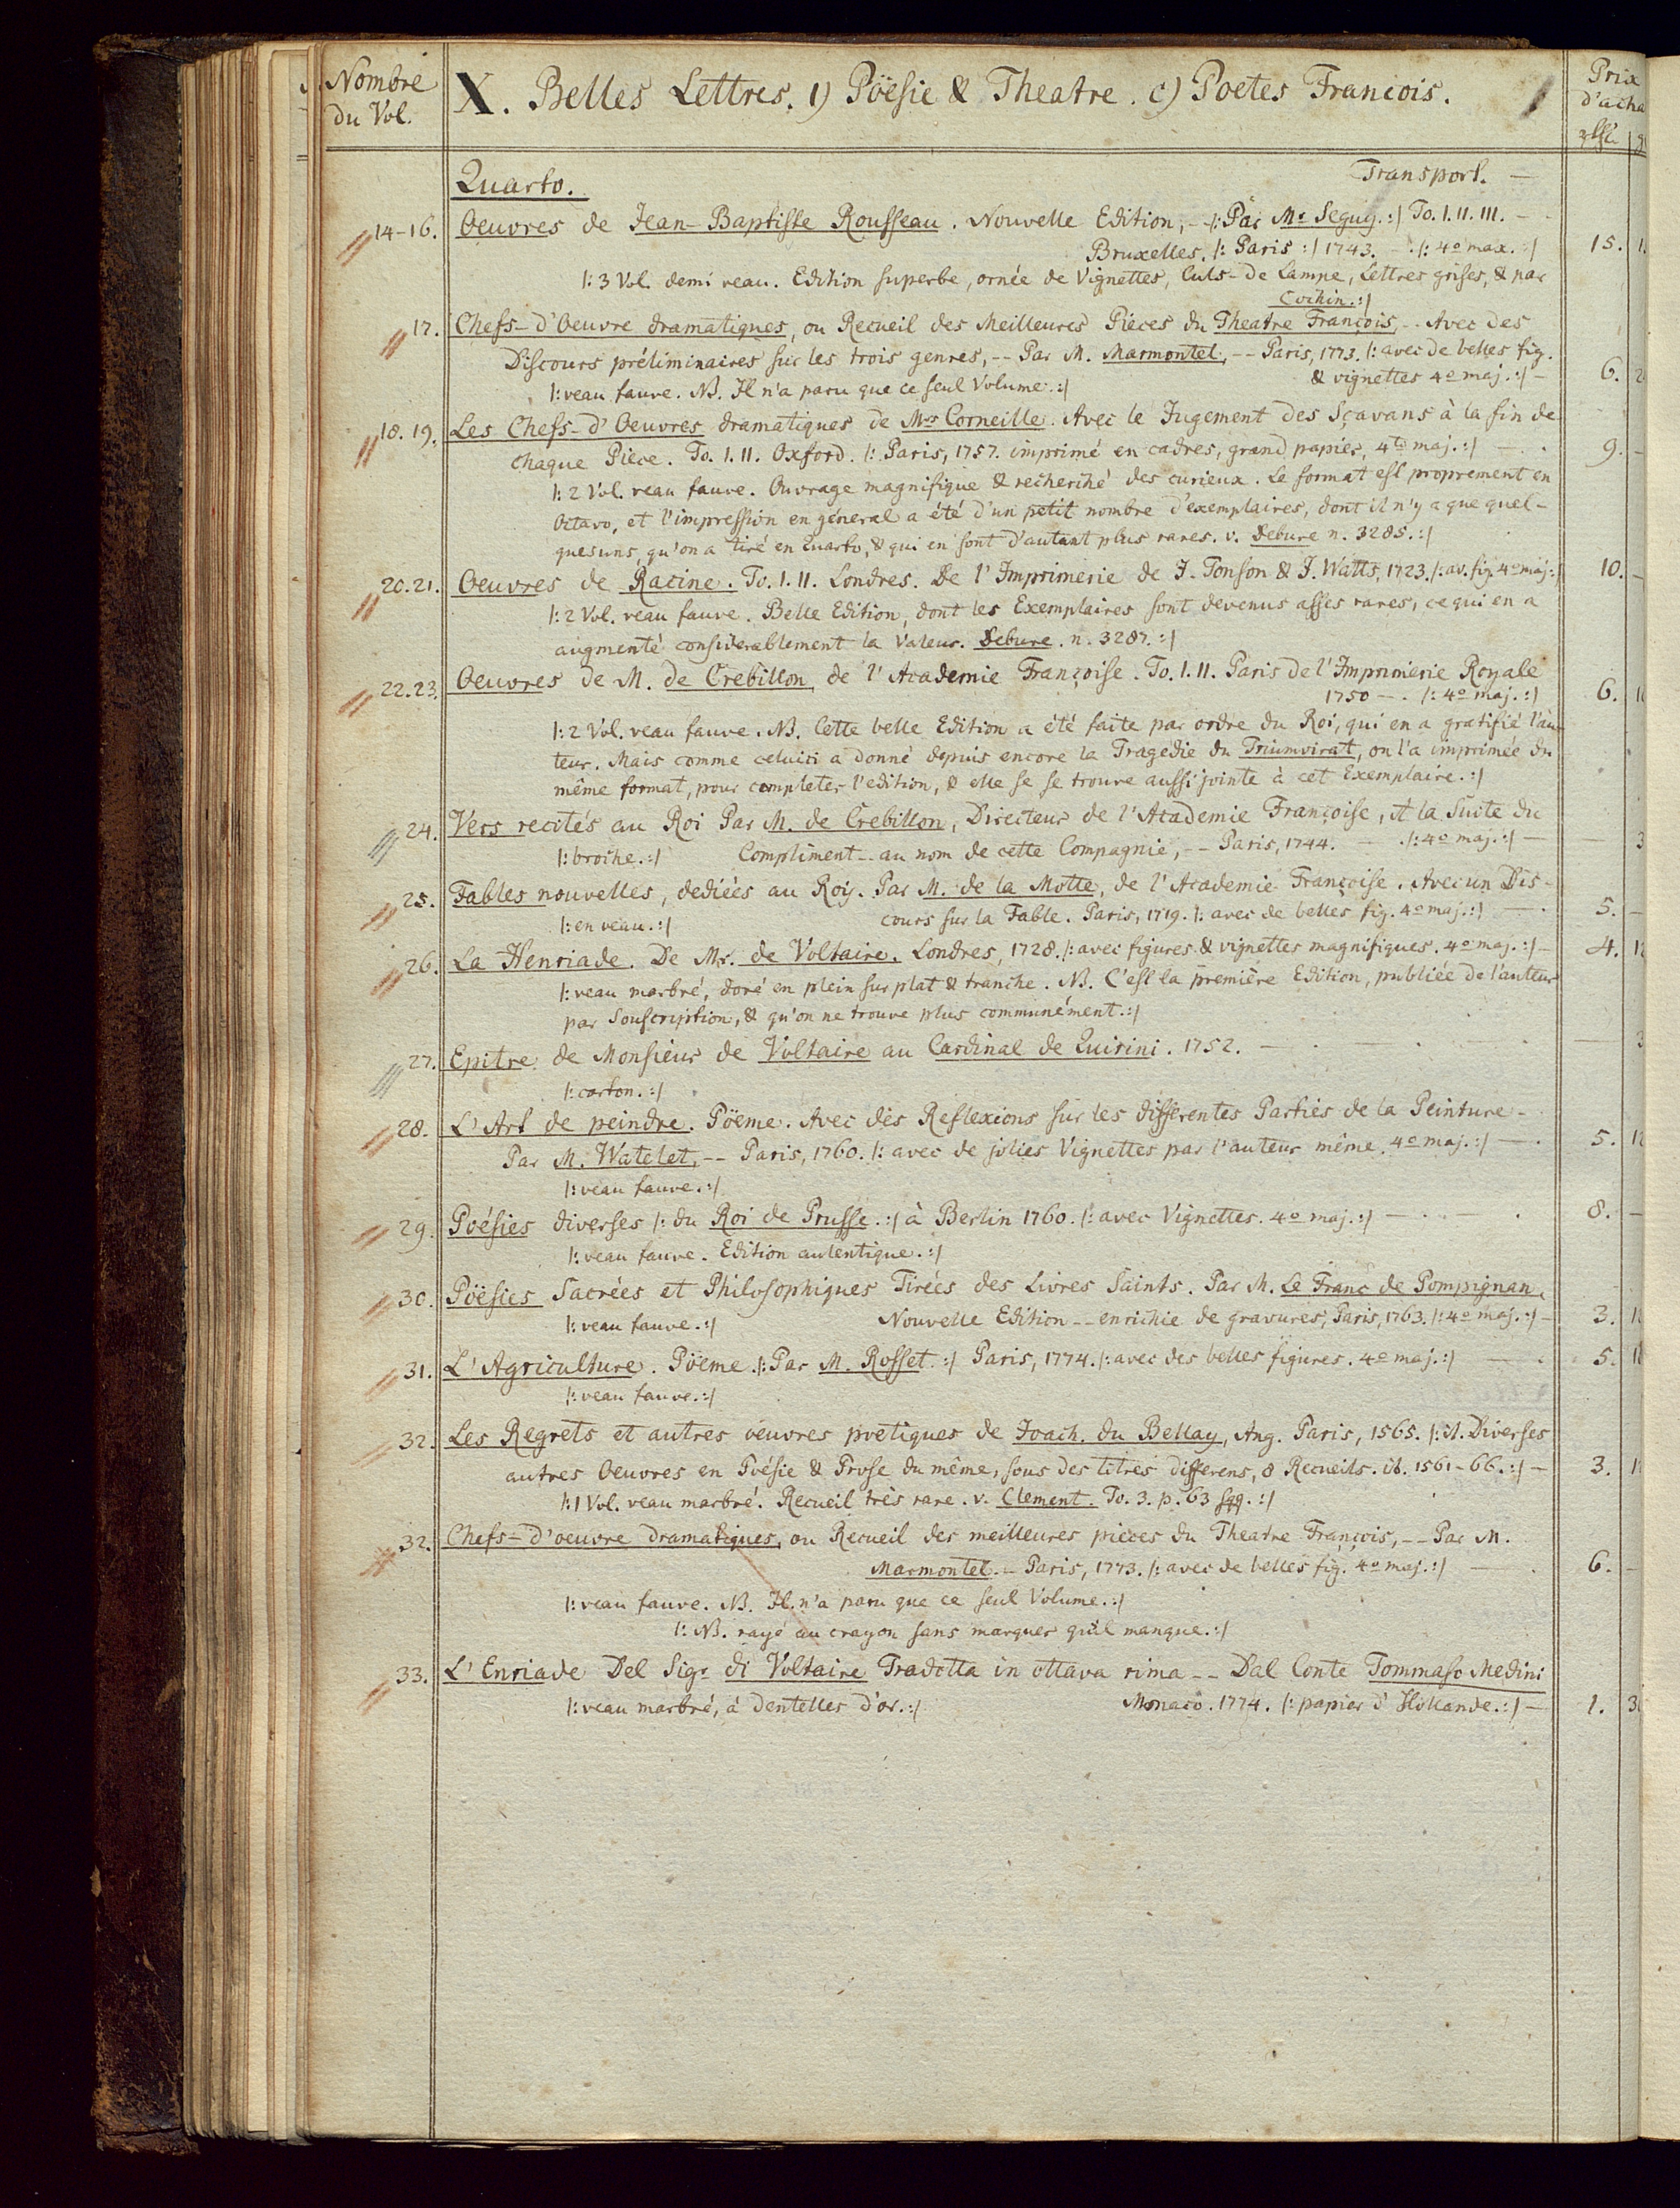 Nombre
du Vol.
X. Belles Lettres. 1) Pöësie & Theatre. c) Poetes Francois.
Prix
d'acha
Quarto. Transport. —
14-16. Oeuvres de Jean-Baptiste Rousseau. Nouvelle Edition, -- /: Par Mr Seguy. :/ To. I. II. III. -
Bruxelles. /: Paris :/ 1743. - /: 4o max. :/ 15.
/: 3 Vol. demi veau. Edition superbe, ornée de Vignettes, Culs-de Lampe, Lettres grises, & par
Cochin. :/
17. Chefs-d'Oeuvre dramatiques, ou Recueil des Meilleures Pièces du Theatre François, -- Avec des
Discours préliminaires sur les trois genres, -- Par M. Marmontel, -- Paris, 1773. /: avec de belles fig.
& vignettes 4o maj. :/ - 6.
/: veau fauve. NB. Il n'a paru que ce seul Volume. :/
18. 19. Les Chefs-d'Oeuvres dramatiques de Mrs Corneille. Avec le Jugement des Sçavans à la fin de
chaque Pièce. To. I. II. Oxford. /: Paris, 1757. imprimé en cadres, grand papier, 4to maj. :/ — 9. -
/: 2 Vol. veau fauve. Ouvrage magnifique & recherché des curieux. Le format est proprement en
Octavo, et l'impression en géneral a été d'un petit nombre d'exemplaires, dont il n'y a que quel-
quesuns, qu'on a tiré en Quarto, & qui en sont d'autant plus rares. v. Debure n. 3285. :/
20. 21. Oeuvres de Racine. To. I. II. Londres. De l'Imprimerie de J. Tonson & J. Watts, 1723. /: av. fig. 4o maj: / 10. -
/: 2 Vol. veau fauve. Belle Edition, dont les Exemplaires sont devenus asses rares, ce qui en a
augmenté considerablement la Valeur. Debure. n. 3287. :/
22. 23. Oeuvres de M. de Crebillon, de l'Academie Françoise. To. I. II. Paris de l'Imprimerie Royale
1750 - . /: 4o maj. :/ 6.
/: 2 Vol. veau fauve. NB. Cette belle Edition a été faite par ordre du Roi, qui en a gratifié l'au
teur. Mais comme celuici a donné depuis encore la Tragedie du Triumvirat, on l'a imprimée du
même format, pour completer l'edition, & elle se se trouve aussi jointe à cet Exemplaire. :/
24. Vers recités au Roi Par M. de Crebillon, Directeur de l'Academie Françoise, et la Suite du
/: broche. :/ Compliment -- au nom de cette Compagnie, -- Paris, 1744. — /: 4o maj. :/ — — 3
25. Fables nouvelles, dediées au Roy. Par M. de la Motte, de l'Academie Françoise. Avec un Dis-
/: en veau. :/ cours sur la Fable. Paris, 1719. /: avec de belles fig. 4o maj. :/ — 5. -
26. La Henriade. De Mr. de Voltaire. Londres, 1728. /: avec figures & vignettes magnifiques. 4o maj. :/ - 4. 12
/: veau marbré, doré en plein sur plat & tranche. NB. C'est la première Edition, publiée de l'auteur
par Souscription, & qu'on ne trouve plus communément. :/
27. Epitre de Monsieur de Voltaire au Cardinal de Quirini. 1752. — — — 3
/: carton. :/
28. L'Art de peindre. Pöeme. Avec des Reflexions sur les differentes Parties de la Peinture -
Par M. Watelet, -- Paris, 1760. /: avec de jolies Vignettes par l'auteur même. 4o maj. :/ — 5. 12
/: veau fauve. :/
29. Poésies diverses /: du Roi de Prusse. :/ à Berlin 1760. /: avec Vignettes. 4o maj. :/ — — 8. -
/: veau fauve. Edition autentique. :/
30. Pöësies Sacrées et Philosophiques Tirées des Livres Saints. Par M. Le Franc de Pompignan.
/: veau fauve. :/ Nouvelle Edition -- enrichie de gravures, Paris, 1763. /: 4o maj. :/ - 3.
31. L'Agriculture. Pöeme. /: Par M. Rosset. :/ Paris, 1774. /: avec des belles figures. 4o maj. :/ — 5.
/: veau fauve. :/
32. Les Regrets et autres oeuvres poetiques de Joach. du Bellay, Ang. Paris, 1565. /: it. Diverses
autres Oeuvres en Poésie & Prose du même, sous des titres differens, 8 Recueils. ib. 1561-66. :/ - 3.
/: 1 Vol. veau marbré. Recueil très rare. v. Clement. To. 3. p. 63 sqq. :/
32. Chefs-d'oeuvre dramatiques, ou Recueil des meilleures pièces du Theatre François, -- Par M.
Marmontel. - Paris, 1773. /: avec de belles fig. 4o maj. :/ — 6. -
/: veau fauve. NB. Il n'a paru que ce seul Volume. :/
/: NB. rayé au crayon sans marquer qu'il manque. :/
33. L'Enriade Del Sigr di Voltaire Tradotta in ottava rima -- Dal Conte Tommaso Medini
/: veau marbré, à dentelles d'or. :/ Monaco. 1774. /: papier d'Hollande. :/ - 1. 3